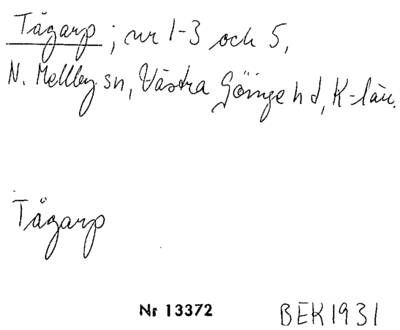 Tågarp; nr 1-3 och 5,
N. Mellby sn, Västra Göinge hd, K-län.
Tågarp
Nr 13372 BEK1931